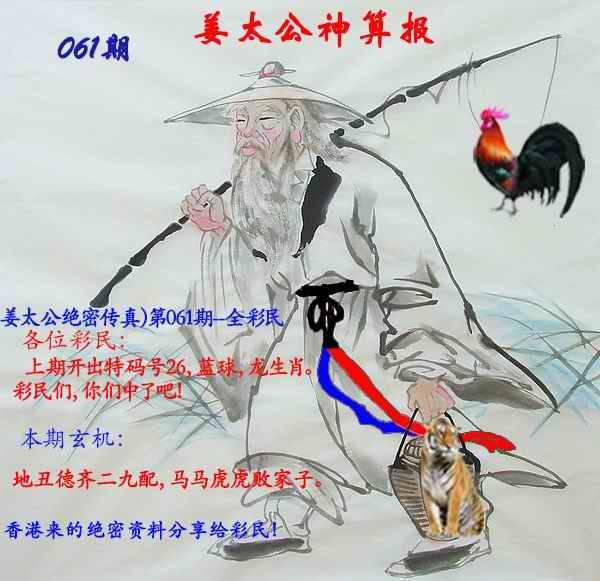 061期
姜太公神算报
姜太公绝密传真)第061期--全彩民
各位彩民:
上期开出特码号26,蓝球,龙生肖。
彩民们,你们中了吧!
本期玄机:
地丑德齐二九配,马马虎虎败家子。
香港来的绝密资料分享给彩民!